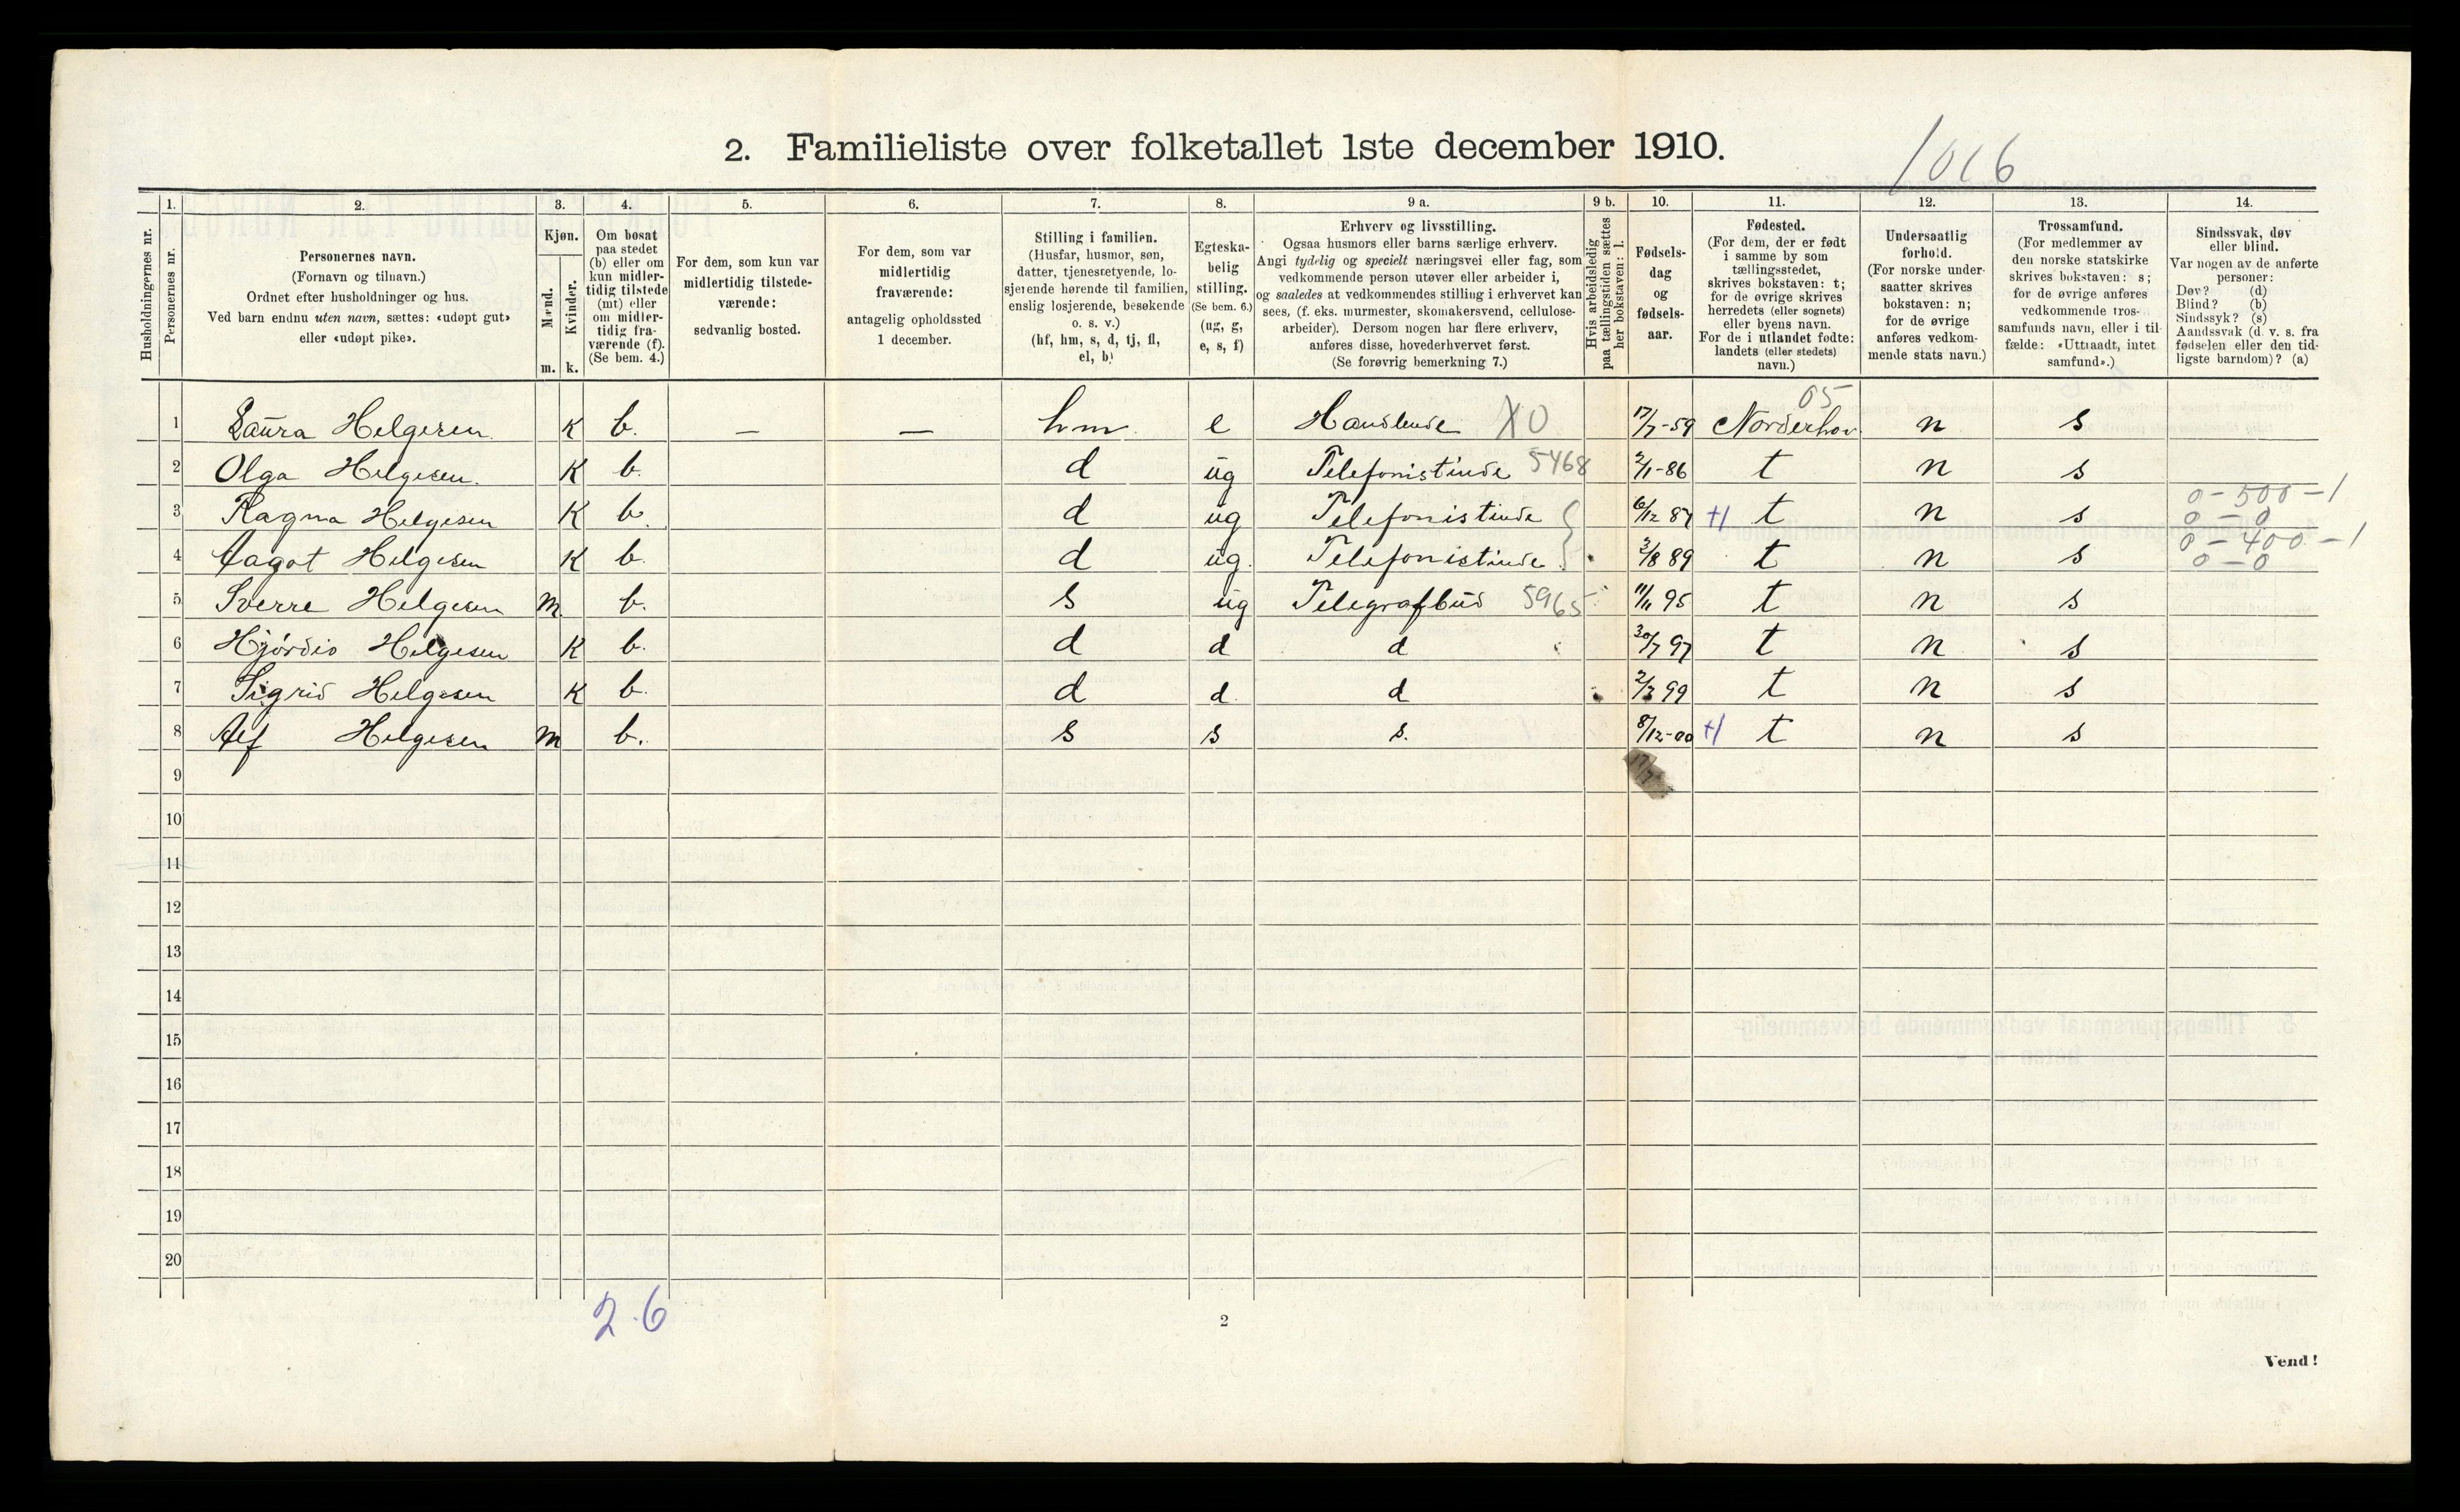 2. Familieliste over folketallet 1ste december 1910.
1016
Husholdningernes nr.
1.
Personernes nr.
2.
Personernes navn.
(Fornavn og tilnavn.)
Ordnet efter husholdninger og hus.
Ved barn endnu uten navn, sættes: «udøpt gut»
eller «udøpt pike».
3.
Kjøn.
Mænd.
Kvinder.
m. k.
4.
Om bosat
paa stedet
(b) eller om
kun midler-
tidig tilstede
(mt) eller
om midler-
tidig fra-
værende (f).
(Se bem. 4.)
5.
For dem, som kun var
midlertidig tilstede-
værende:
sedvanlig bosted.
6.
For dem, som var
midlertidig
fraværende:
antagelig opholdssted
1 december.
7.
Stilling i familien.
(Husfar, husmor, søn,
datter, tjenestetyende, lo-
sjerende hørende til familien,
enslig losjerende, besøkende
o. s. v.)
(hf, hm, s, d, tj, fl,
el, b)
8.
Egteska-
belig
stilling.
(Se bem. 6.)
(ug, g,
e, s, f)
9 a.
Erhverv og livsstilling.
Ogsaa husmors eller barns særlige erhverv.
Angi tydelig og specielt næringsvei eller fag, som
vedkommende person utøver eller arbeider i,
og saaledes at vedkommendes stilling i erhvervet kan
sees, (f. eks. murmester, skomakersvend, cellulose-
arbeider). Dersom nogen har flere erhverv,
anføres disse, hovederhvervet først.
(Se forøvrig bemerkning 7.)
9 b.
Hvis arbeidsledig
paa tællingstiden sættes
her bokstaven: l.
10.
Fødsels-
dag
og
fødsels-
aar.
11.
Fødested.
(For dem, der er født
i samme by som
tællingsstedet,
skrives bokstaven: t;
for de øvrige skrives
herredets (eller sognets)
eller byens navn.
For de i utlandet fødte:
landets (eller stedets)
navn.)
12.
Undersaatlig
forhold.
(For norske under-
saatter skrives
bokstaven: n;
for de øvrige
anføres vedkom-
mende stats navn.)
13.
Trossamfund.
(For medlemmer av
den norske statskirke
skrives bokstaven: s;
for de øvrige anføres
vedkommende tros-
samfunds navn, eller i til-
fælde: «Uttraadt, intet
samfund».)
14.
Sindssvak, døv
eller blind.
Var nogen av de anførte
personer:
Døv? (d)
Blind? (b)
Sindssyk? (s)
Aandssvak (d. v. s. fra
fødselen eller den tid-
ligste barndom)? (a)
05
1 Laura Helgesen. K b. — — hm e Handlende X0 17/7-59 Norderhov n s
2 Olga Helgesen. K b. d ug Telefonistinde 5468 2/1-86 t n s
0 - 500 - 1
3 Ragna Helgesen K b. d ug Telefonistinde } 6/12 87 +1 t n s 0 - 0
0 - 400 - 1
4 Aagot Helgesen K b. d ug. Telefonistinde 3/8 89 t n s 0 - 0
5 Sverre Helgesen m. b. s ug Telegrafbud 5965 11/11 95 t n s
6 Hjördis Helgesen K b. d d d 30/7 97 t n s
7 Sigrid Helgesen K b. d d. d 2/3 99 t n s
8 Alf Helgesen m b. s s s. 8/12-00 +1 t n s
9
10
11
12
13
14
15
16
17
18
19
20
2.6
2
Vend!